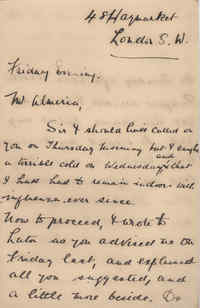 48 Haymarket
London S. W.
Friday Evening.
Mr Almeria,
Sir I should have called on
you on Thursday morning but I caught
a terrible cold on Wednesday and that
I have had to remain indoors with
influenza ever since.
Now to proceed, I wrote to
as you advised me on
Friday last, and explained
all you suggested, and
a little more beside. Do